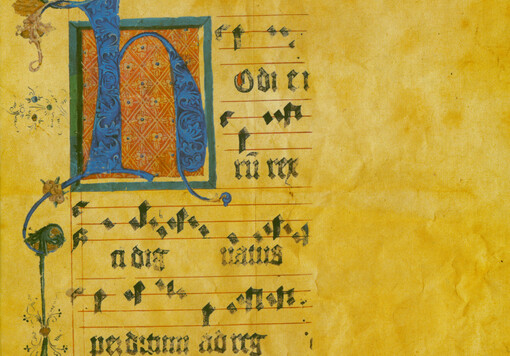 Hodi ei
rũ rex
ri dig natus
perditum ad reg